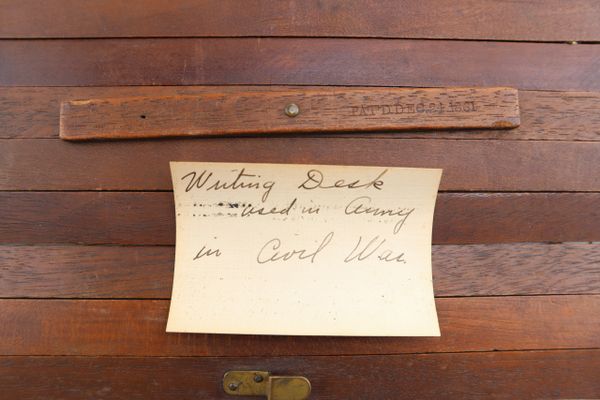 PAT'D. DEC. 24. 1861.
Writing Desk
used in Army
in Civil War.